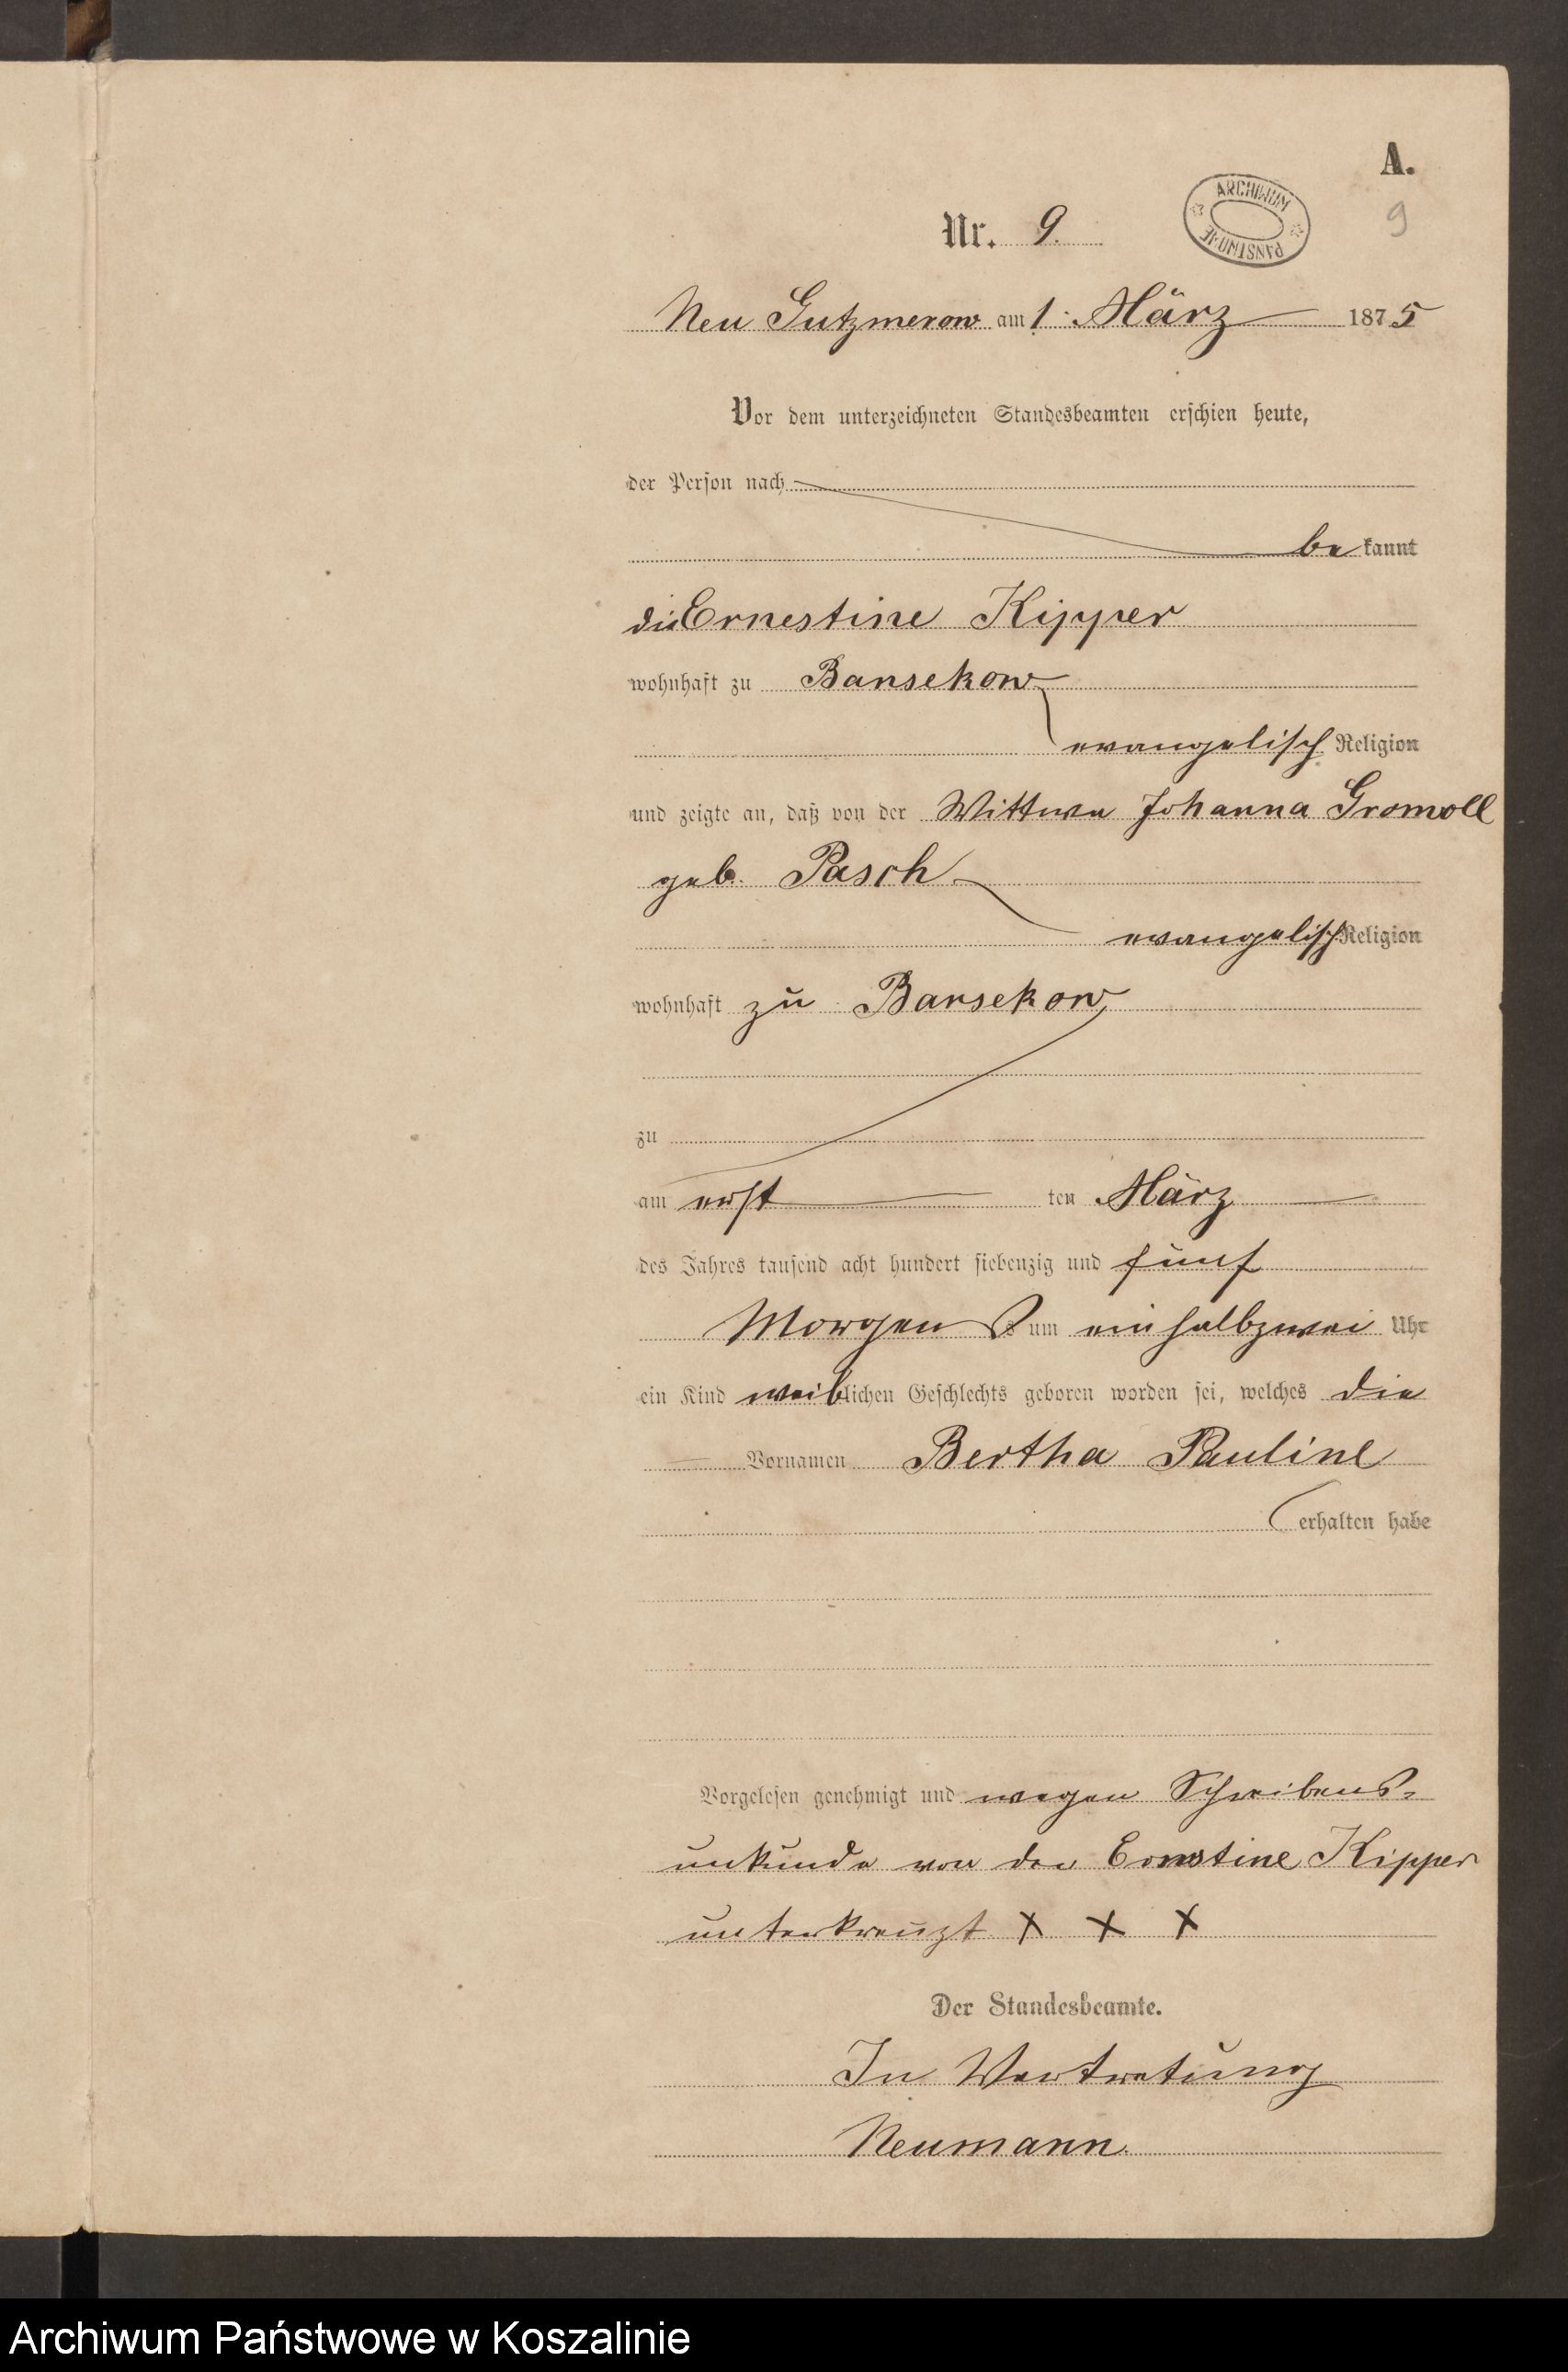 A.
ARCHIWUM
PAŃSTWOWE
9
Nr. 9.
Neu Gutzmerow am 1. März 1875
Vor dem unterzeichneten Standesbeamten erschien heute,
der Person nach
bekannt
die Ernestine Kipper
wohnhaft zu Bansekow
evangelisch Religion
und zeigte an, daß von der Wittwe Johanna Gromoll
geb. Pasch
evangelisch Religion
wohnhaft zu Bansekow
zu
am erst ten März
des Jahres tausend acht hundert siebenzig und fünf
Morgens um ein halbzwei Uhr
ein Kind weiblichen Geschlechts geboren worden sei, welches die
Vornamen Bertha Pauline
erhalten habe
Vorgelesen genehmigt und wegen Schreibens-
unkunde von der Ernstine Kipper
unterkreuzt X X X
Der Standesbeamte.
In Vertretung
Neumann.
Archiwum Państwowe w Koszalinie